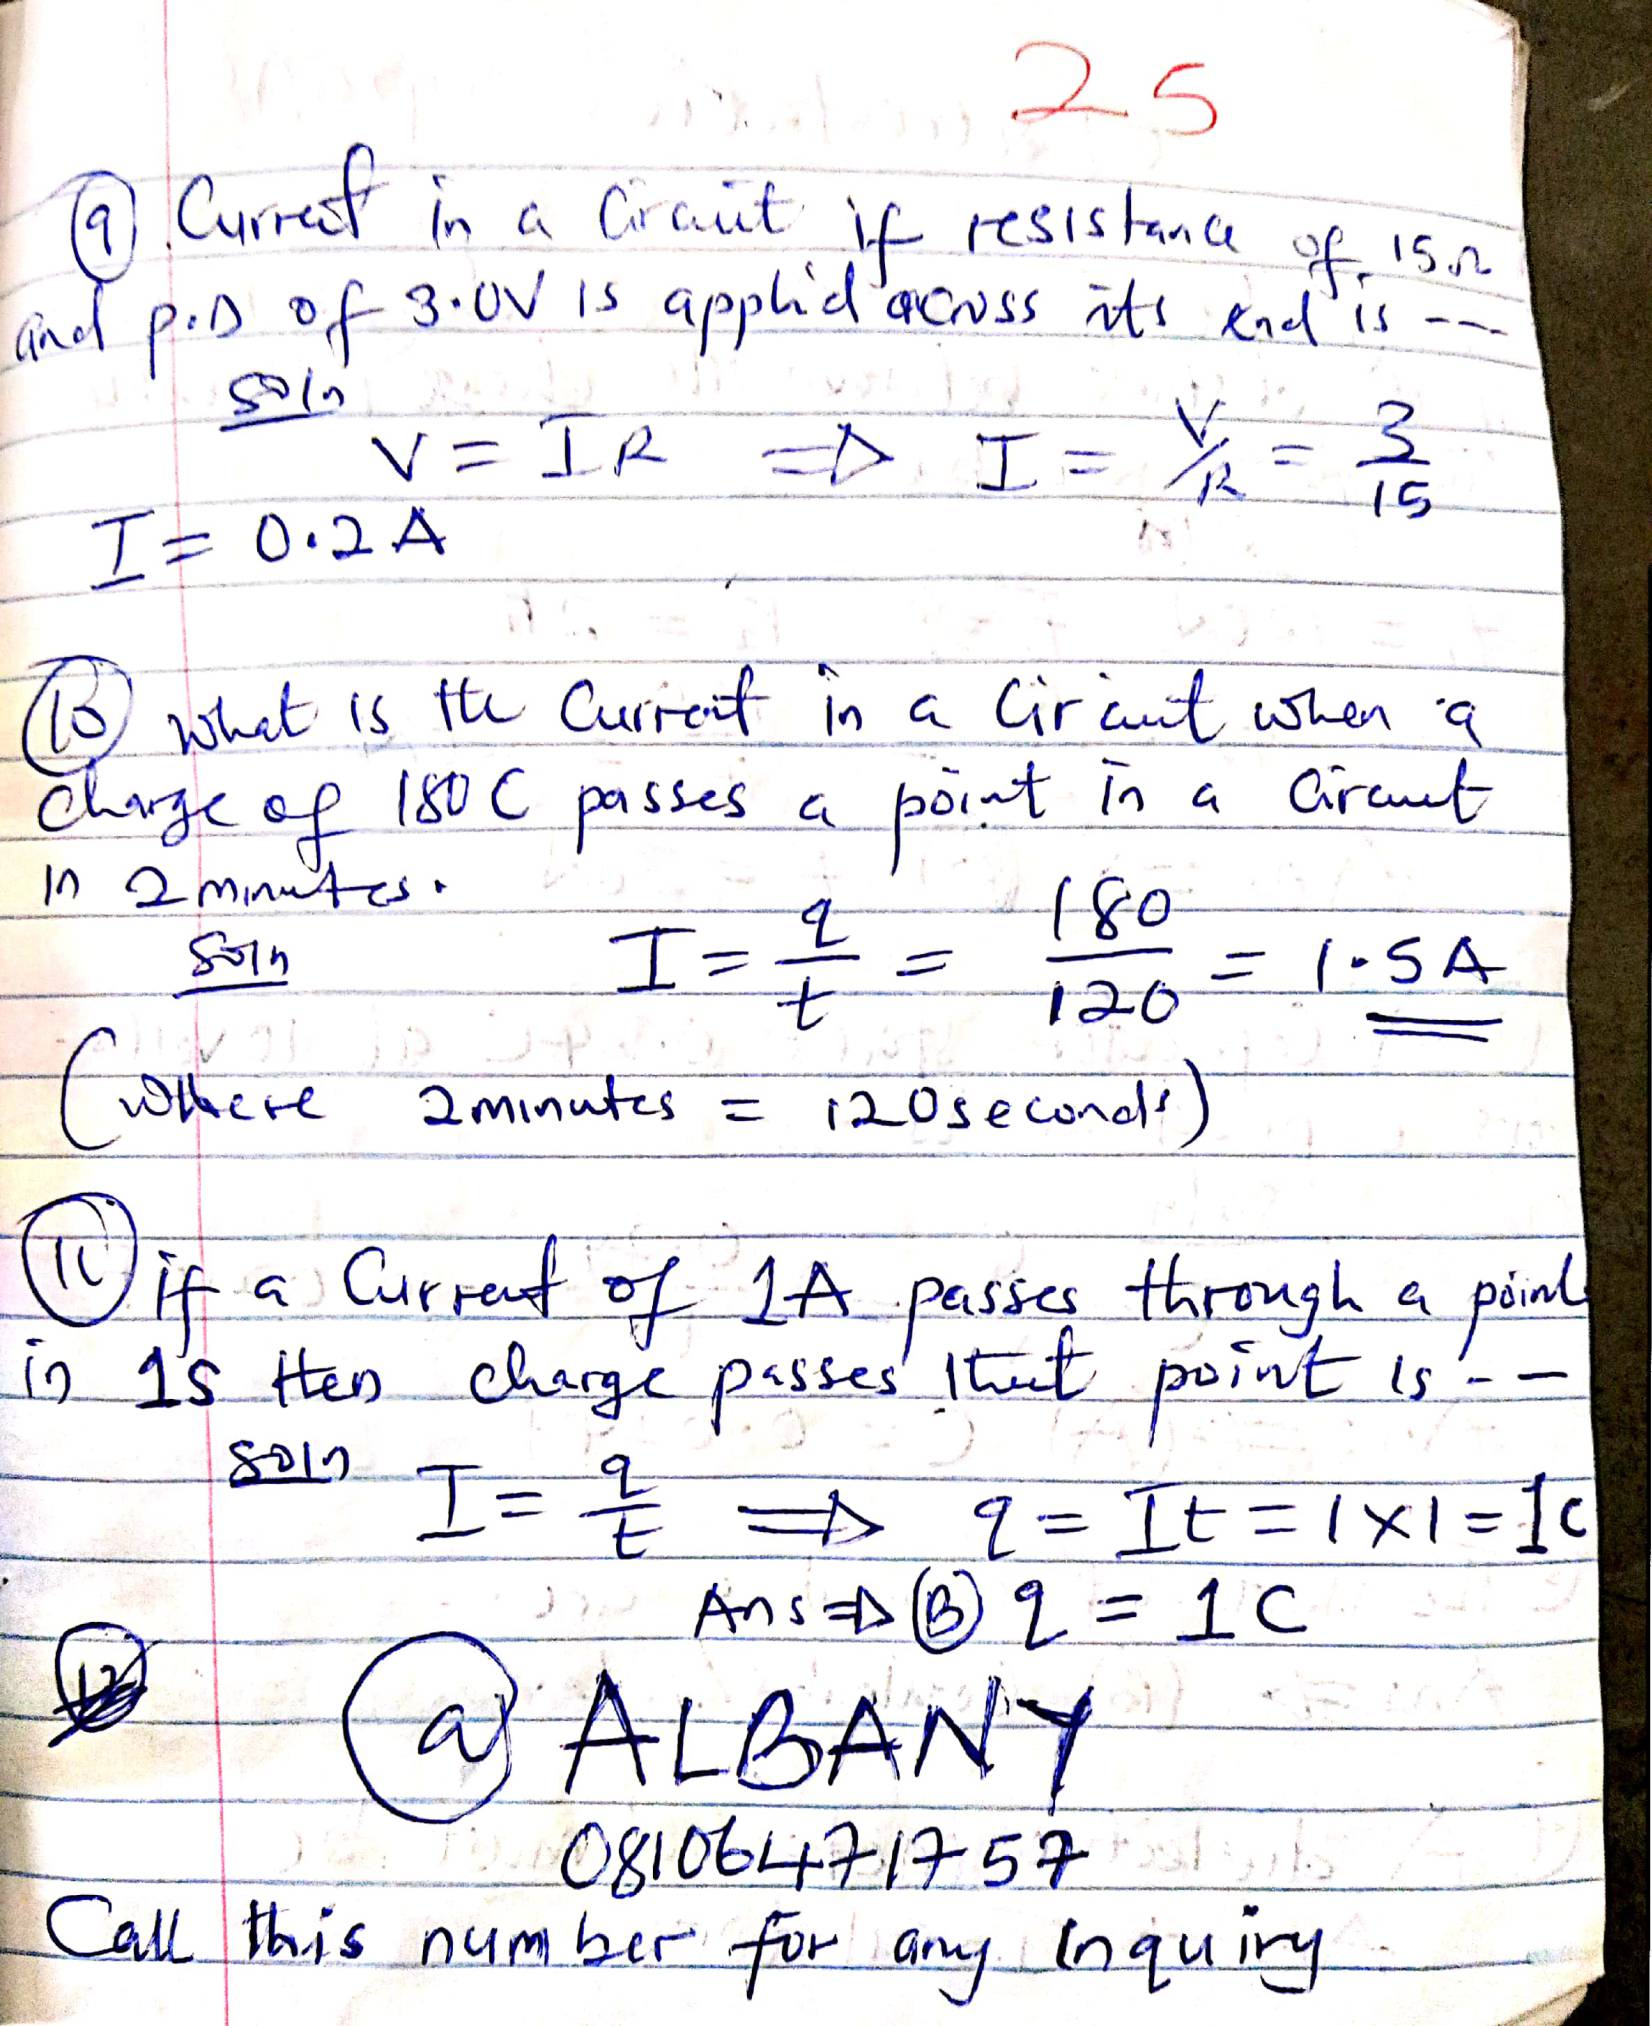 25
⑨ Current in a Circuit if resistance of 15Ω
and p.D of 3.0V is applid across its end is ---
soln
V = IR ⇒ I = V/R = 3/15
I = 0.2A
⑩ What is the Current in a Circuit when a
charge of 180C passes a point in a Circuit
in 2 minutes.
soln I = q/t = 180/120 = 1.5A
(where 2minutes = 120seconds)
⑪ if a Current of 1A passes through a point
in 1s then charge passes that point is --
soln I = q/t ⇒ q = It = 1×1 = 1C
Ans ⇒ Ⓑ q = 1C
@ ALBANY
08106471757
Call this number for any inquiry